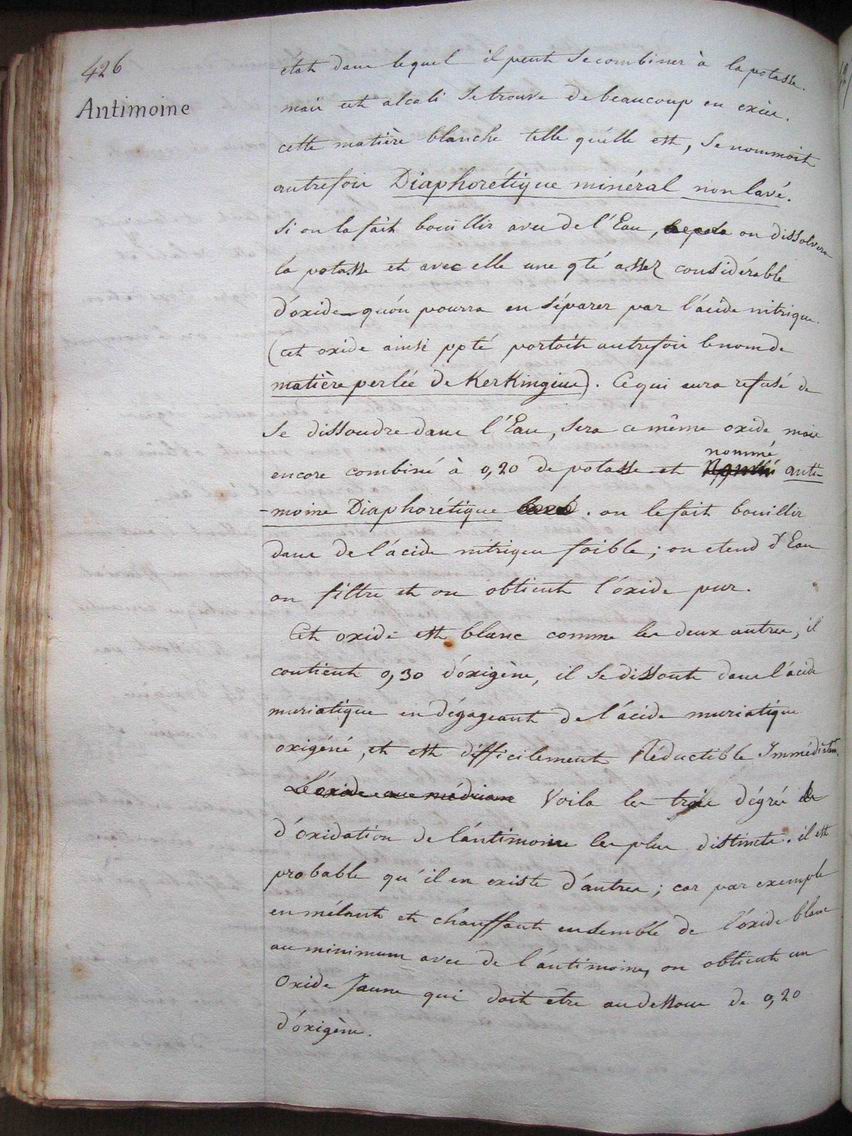 426
Antimoine
état dans lequel il peut se combiner à la potasse.
mais cet alcali se trouve de beaucoup en excès.
cette matière blanche telle qu'elle est, se nommoit
autrefois Diaphorétique minéral non lavé.
Si on la fait bouillir avec de l'Eau, on dissolvera
la potasse et avec elle une qté assez considérable
d'oxide qu'on pourra en séparer par l'acide nitrique.
(cet oxide ainsi ppté portoit autrefois le nom de
matière perlée de Kerkringius). Ce qui aura refusé de
se dissoudre dans l'Eau, sera ce même oxide mais
encore combiné à 0,20 de potasse et nommé anti-
-moine Diaphorétique . on le fait bouillir
dans de l'acide nitrique foible ; on etend d'Eau
on filtre et on obtient l'oxide pur.
Cet oxide est blanc comme les deux autres, il
contient 0,30 d'oxigène, il se dissout dans l'acide
muriatique en dégageant de l'acide muriatique
oxigéné, et est difficilement Réductible Immédiatem
L'oxide au médium Voila les trois dégrés
d'oxidation de l'antimoine les plus distincts. il est
probable qu'il en existe d'autres ; car par exemple
en mêlant et chauffant ensemble de l'oxide blanc
au minimum avec de l'antimoine, on obtient un
Oxide Jaune qui doit être au dessous de 0,20
d'oxigène.